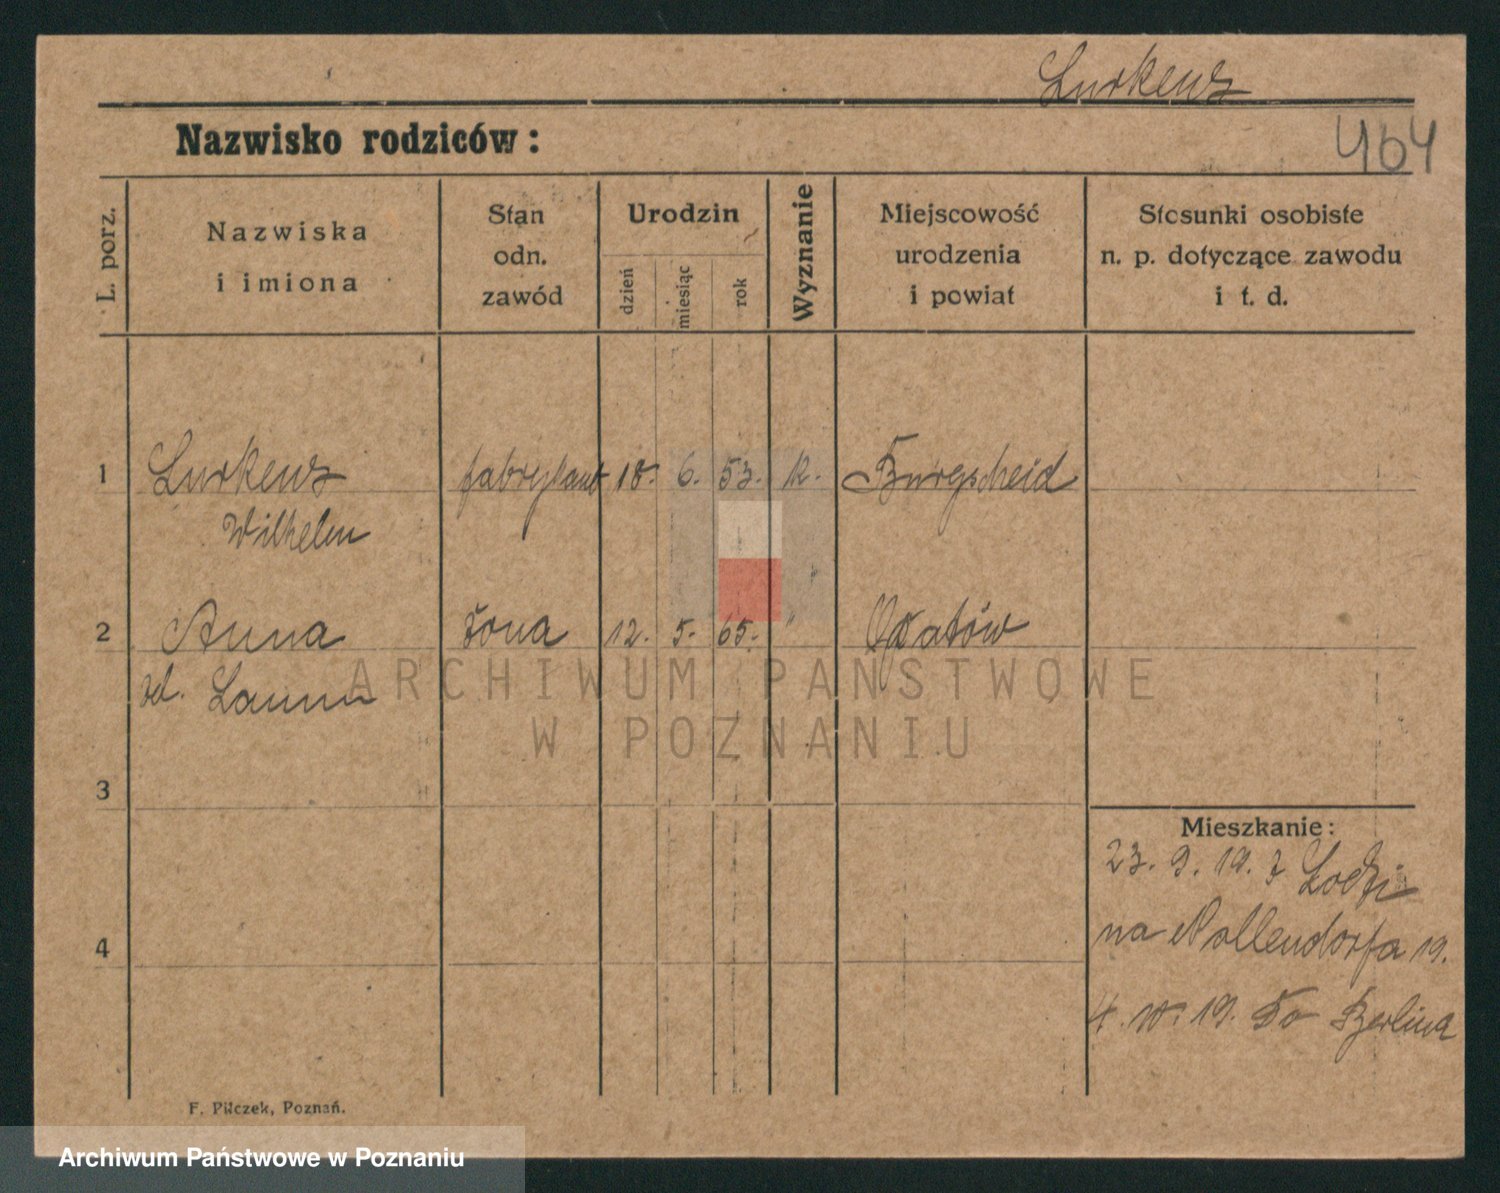 Lurkens
464
Nazwisko rodziców:
L. porz.
Nazwiska
i imiona
Stan
odn.
zawód
Urodzin
dzień
miesiąc
rok
Wyznanie
Miejscowość
urodzenia
i powiat
Stosunki osobiste
n. p. dotyczące zawodu
i t. d.
1 Lurkens fabrykant 18. 6. 53. k. Burgscheid
Wilhelm
2 Anna żona 12. 5. 65. " Opatów
zd.
ARCHIWUM PAŃSTWOWE
W POZNANIU
3
Mieszkanie:
23. 9. 19. z Łodzi
na Nollendorfa 19.
4
4. 10. 19. do Berlina
F. Pilczek, Poznań.
Archiwum Państwowe w Poznaniu